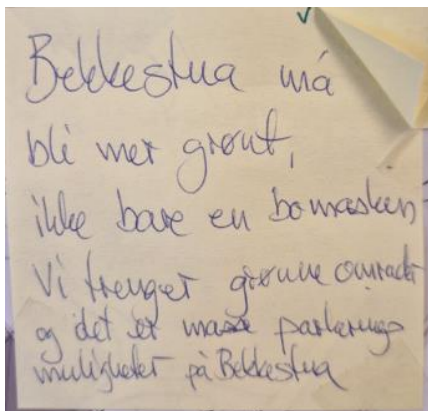 Bekkestua må
bli mer grønt,
ikke bare en bomasken
Vi trenger grønne områder
og det er masse parkerings
muligheter på Bekkestua